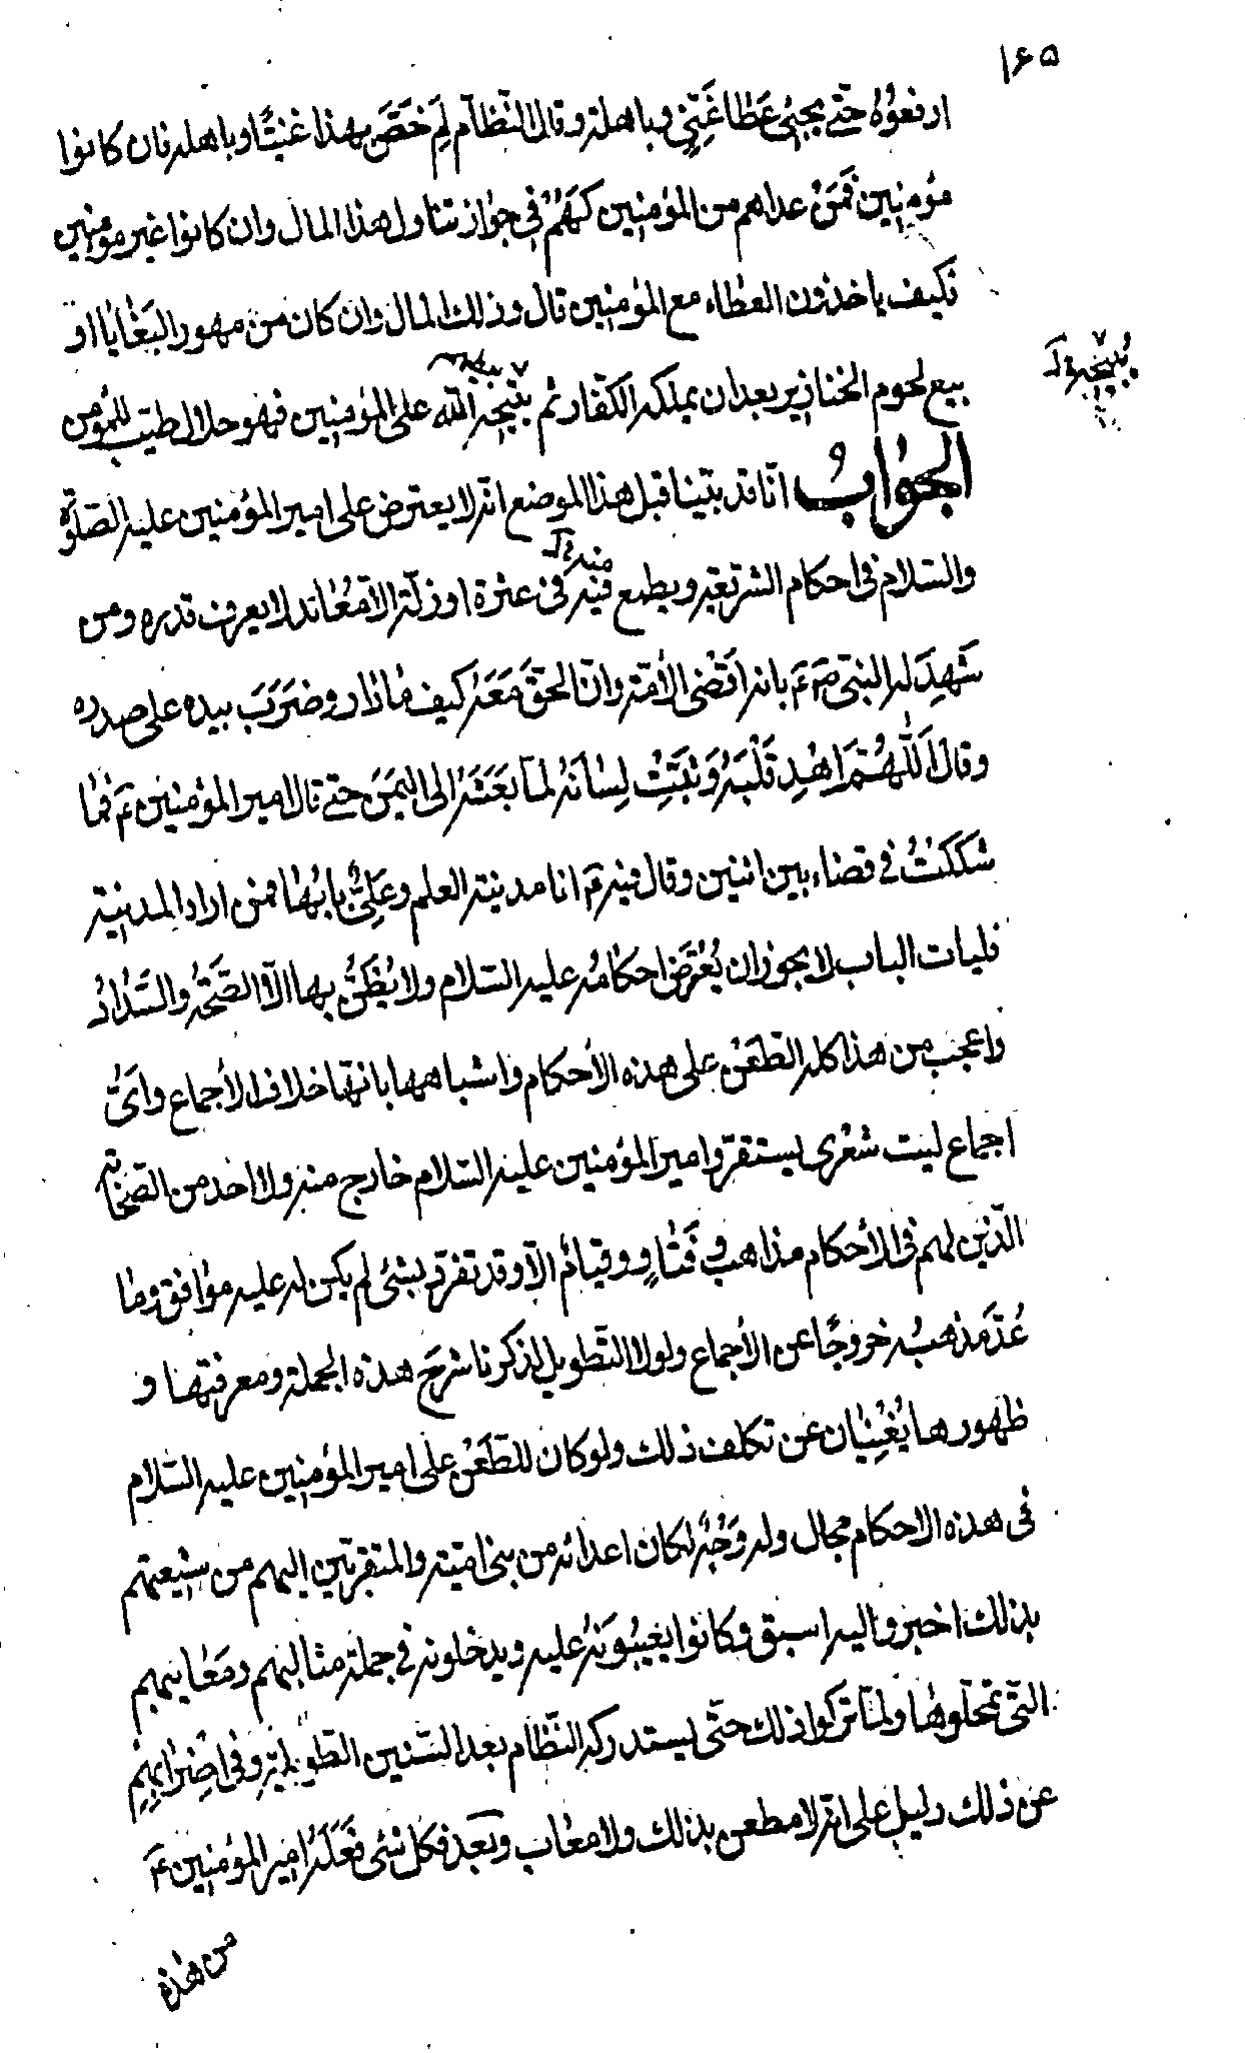 ١۶۵
ارفعوُهُ حتّٰے يجيئ عَطا غَنّيٍ وباهلة وقال النّظّام لِمَ خَصَّ بهذا غنيًّا وباهلة فان كانوا
مؤمنين فَمَنْ عداهم من المؤمنين كَهُمْ في جواز تناول هذا المال وان كانوا غير مؤمنين
فكيف ياخذون العطاء مع المؤمنين قال وذلك المال وان كان من مهور البَغٰايٰا او
بيع لحوم الخنازير بعد ان يملكه الكفّار ثم الله على المؤمنين فهو حلال طيّب للمؤمن
الجوٰابُ انّا قد بيّنا قبل هذا الموضع انّه لا يعترض على امير المؤمنين عليه الصّلوٰة
منه
والسّلام في احكام الشّريعة ويطمع فيه في عثرة او زلّة الّا مُعٰاند لا يعرف قدره ومن
شَهِدَ له النّبيّ صم بانه اَقْضى الأمّة وانّ الحقّ مَعَهُ كيف مٰا دار وضَرَبَ بيده على صدره
وقال اَللّٰهُمَّ اهْدِ قَلْبَهُ وَثَبِّتْ لِسٰانَهُ لمّا بَعَثَهُ الى اليَمَن حتّٰے قال امير المؤمنين ع فمٰا
شككتُ في قضاء بين اثنين وقال فيه ع انا مدينة العلم وعَلِيٌّ بابُهٰا فمن اراد المدينة
فليات الباب لا يجوز ان يُعْترض احكامُه عليه السّلام ولا يُظنُّ بها الّا الصّحّةُ والسَّدٰادُ
واعجب من هذا كلّه الطّعن على هذه الأحكام واشباهها بانّها خلاف الأجماع وايُّ
اجماع ليت شعْرى يستقرّ وامير المؤمنين عليه السّلام خارج منه ولا احد من الصّحٰابة
الّذين لهم في الأحكام مذاهب وفَتٰاوٍ وقيام الّا وقد تفرّد بشئ لم يكن له عليه موٰافق ومٰا
عُدَّ مذهبُه خروجًا عن الأجماع ولولا التّطويل لذكرنا شرحَ هذه الجملة ومعرفتها و
ظهورها يُغْنِيٰان عن تكلف ذلك ولو كان للطّعْن على امير المؤمنين عليه السّلام
في هذه الاحكام مجال وله وَجْهٌ لكان اعدائه من بني اميّة والمتقرّبين اليهم من شيعتهم
بذلك اخبر واليه اسبق وكانوا يعيبُونَهُ عليه ويدخلونه في جملة مثالبهم ومَعٰايبهم
الّتي تمحّلوهٰا ولمّا تركوا ذلك حتّى يستدركه النّظّام بعد السّنين الطّويلة وفي اِضْرٰابِهِمْ
عن ذلك دليل على انّه لا مطعن بذلك ولا معٰاب وبَعد فكل شئى فَعَلَهُ امير المؤمنين ع
من هذه